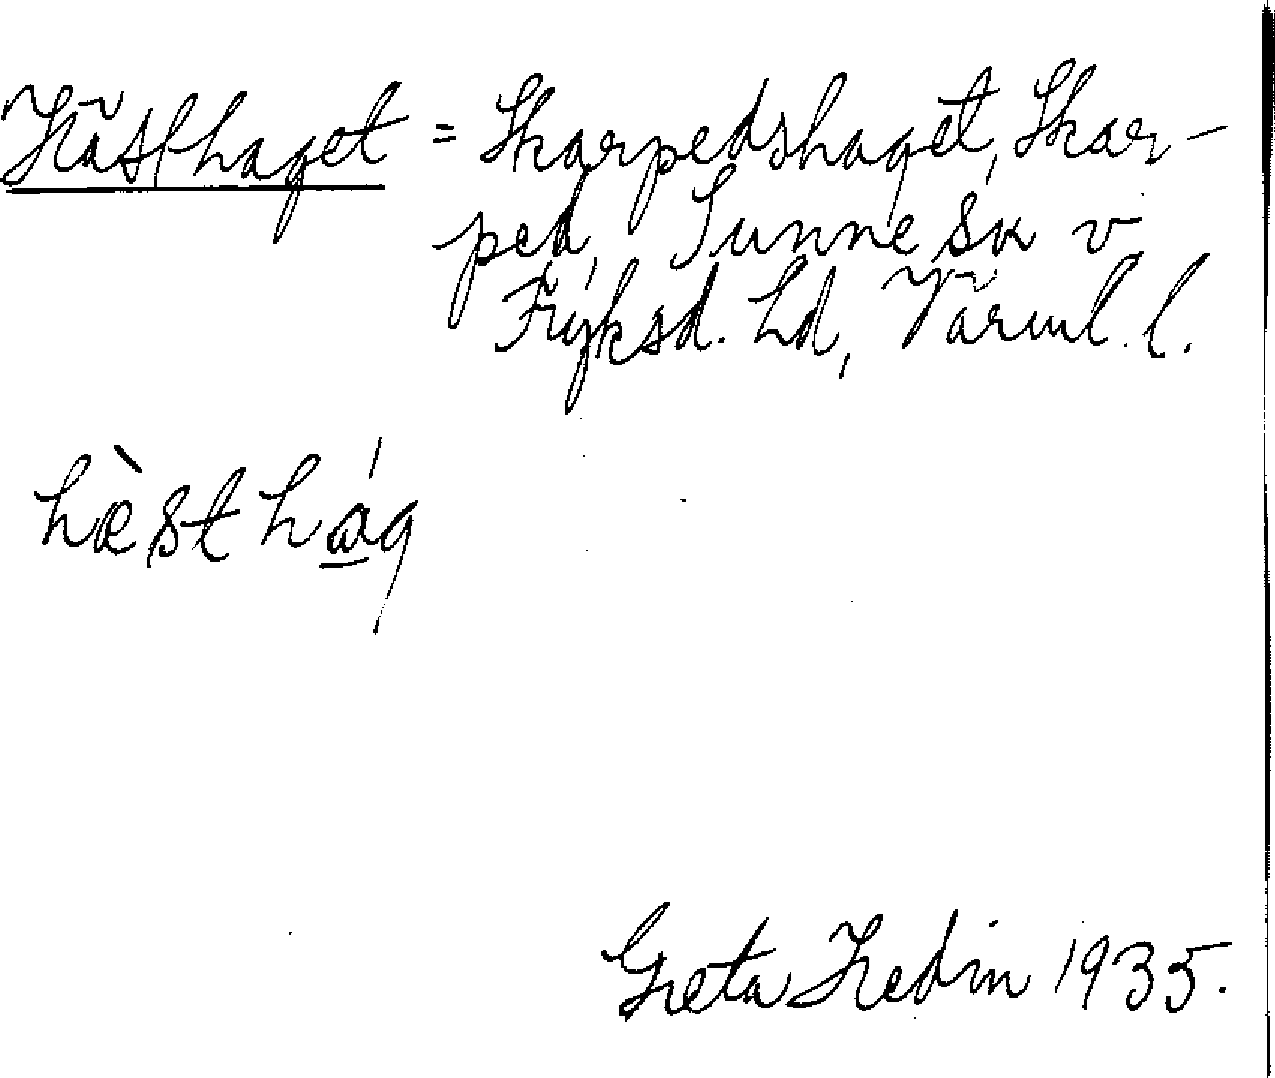 Hästhaget = Skarpedshaget, Skar-
ped, Sunne sn v
Fryksd. hd, Värml. l.
hæ̀sthág
Greta Hedin 1935.